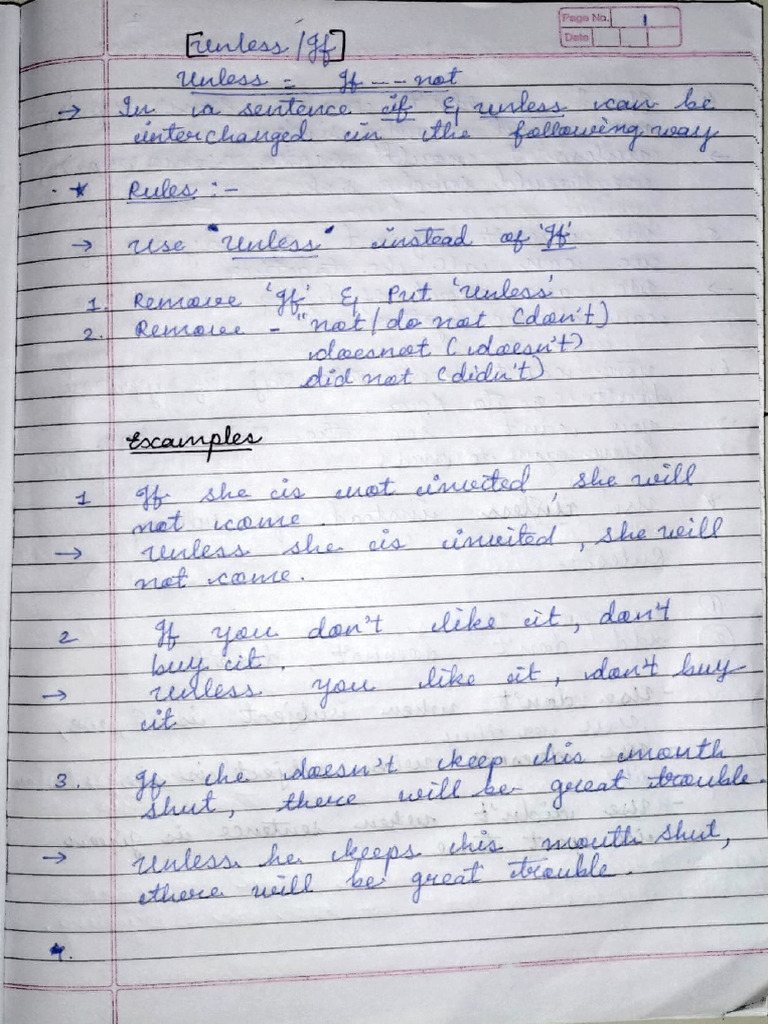 Page No. 1
Date
[Unless / If]
Unless = If --- not
→ In a sentence if & unless can be
interchanged in the following way
* Rules :-
→ Use "Unless" instead of 'If'
1. Remove 'If' & Put 'Unless'
2. Remove - "not / do not (don't)
doesnot (doesn't)
did not (didn't)
Examples
1 If she is not invited, she will
not come.
→ Unless she is invited, she will
not come.
2 If you don't like it, don't
buy it.
→ Unless you like it, don't buy
it
3. If he doesn't keep his mouth
shut, there will be great trouble.
→ Unless he keeps his mouth shut,
there will be great trouble.
*.